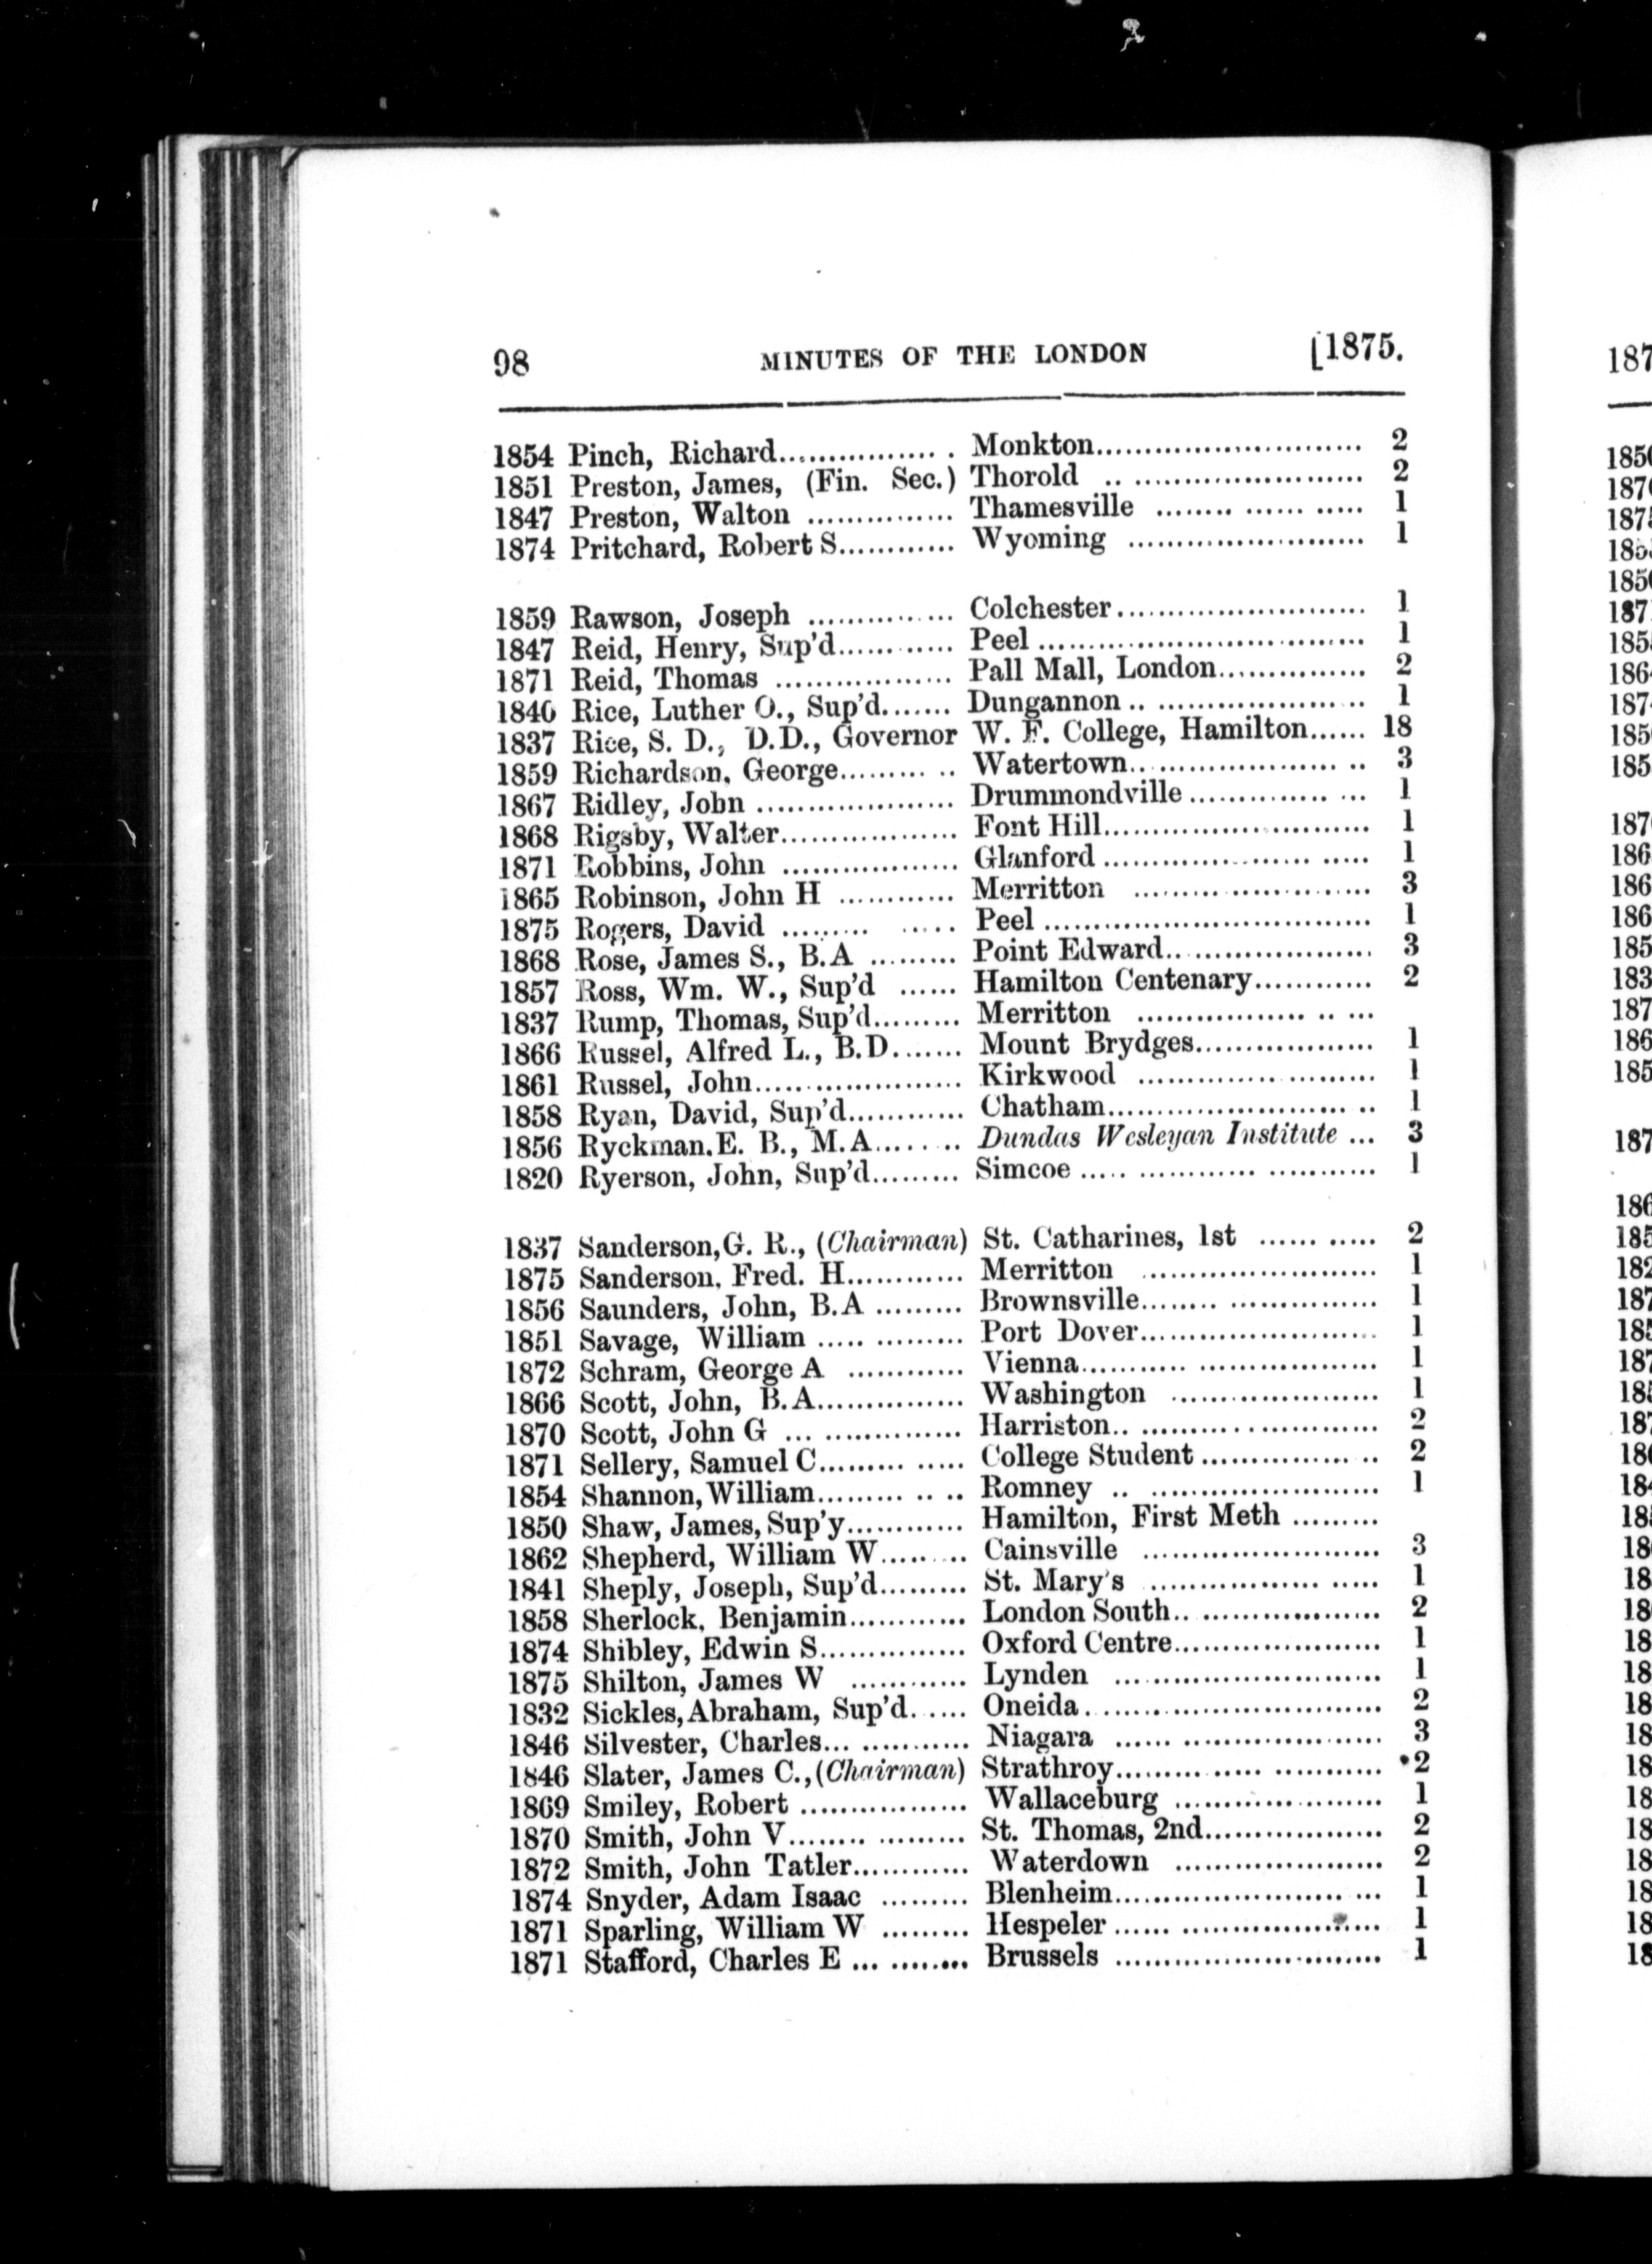 98 MINUTES OF THE LONDON [1875.
1854 Pinch, Richard................ Monkton........................... 2
1851 Preston, James, (Fin. Sec.) Thorold .. ....................... 2
1847 Preston, Walton ............... Thamesville ........ ...... ..... 1
1874 Pritchard, Robert S............ Wyoming ........................ 1
1859 Rawson, Joseph ............... Colchester......................... 1
1847 Reid, Henry, Sup'd............ Peel ................................. 1
1871 Reid, Thomas .................. Pall Mall, London............... 2
1840 Rice, Luther O., Sup'd....... Dungannon .. ..................... .. 1
1837 Rice, S. D., D.D., Governor W. F. College, Hamilton...... 18
1859 Richardson, George......... .. Watertown.. ..................... .. 3
1867 Ridley, John .................... Drummondville .............. ... 1
1868 Rigsby, Walter.................. Font Hill........................... 1
1871 Robbins, John .................. Glanford ..................... ..... 1
1865 Robinson, John H ............ Merritton ........................ 3
1875 Rogers, David ......... ..... Peel ................................. 1
1868 Rose, James S., B.A ......... Point Edward.. .................. 3
1857 Ross, Wm. W., Sup'd ...... Hamilton Centenary............ 2
1837 Rump, Thomas, Sup'd......... Merritton ................. .. ...
1866 Russel, Alfred L., B.D....... Mount Brydges.................. 1
1861 Russel, John..................... Kirkwood ........................ 1
1858 Ryan, David, Sup'd............ Chatham......................... .. 1
1856 Ryckman. E. B., M.A....... .. Dundas Wesleyan Institute ... 3
1820 Ryerson, John, Sup'd......... Simcoe ..... ............. ........... 1
1837 Sanderson, G. R., (Chairman) St. Catharines, 1st ...... ..... 2
1875 Sanderson, Fred. H............ Merritton ........................ 1
1856 Saunders, John, B.A ......... Brownsville........ ............... 1
1851 Savage, William ..... ......... Port Dover........................ 1
1872 Schram, George A ............ Vienna........... .................. 1
1866 Scott, John, B.A............... Washington ..................... 1
1870 Scott, John G ... .............. Harriston.. ........................ 2
1871 Sellery, Samuel C......... ..... College Student ............... .. 2
1854 Shannon, William......... .. .. Romney .. ....................... 1
1850 Shaw, James, Sup'y............ Hamilton, First Meth .........
1862 Shepherd, William W......... Cainsville ........................ 3
1841 Sheply, Joseph, Sup'd......... St. Mary's ................. ..... 1
1858 Sherlock, Benjamin............ London South.. .................. 2
1874 Shibley, Edwin S............... Oxford Centre..................... 1
1875 Shilton, James W ............ Lynden ........................... 1
1832 Sickles, Abraham, Sup'd...... Oneida.............................. 2
1846 Silvester, Charles... ........... Niagara ...... ..................... 3
1846 Slater, James C., (Chairman) Strathroy......... ..... ........... 2
1869 Smiley, Robert ................. Wallaceburg ..................... 1
1870 Smith, John V........ ......... St. Thomas, 2nd.................. 2
1872 Smith, John Tatler............ Waterdown ..................... 2
1874 Snyder, Adam Isaac ......... Blenheim........................ ... 1
1871 Sparling, William W ......... Hespeler ...... ..................... 1
1871 Stafford, Charles E ... ......... Brussels ........................... 1